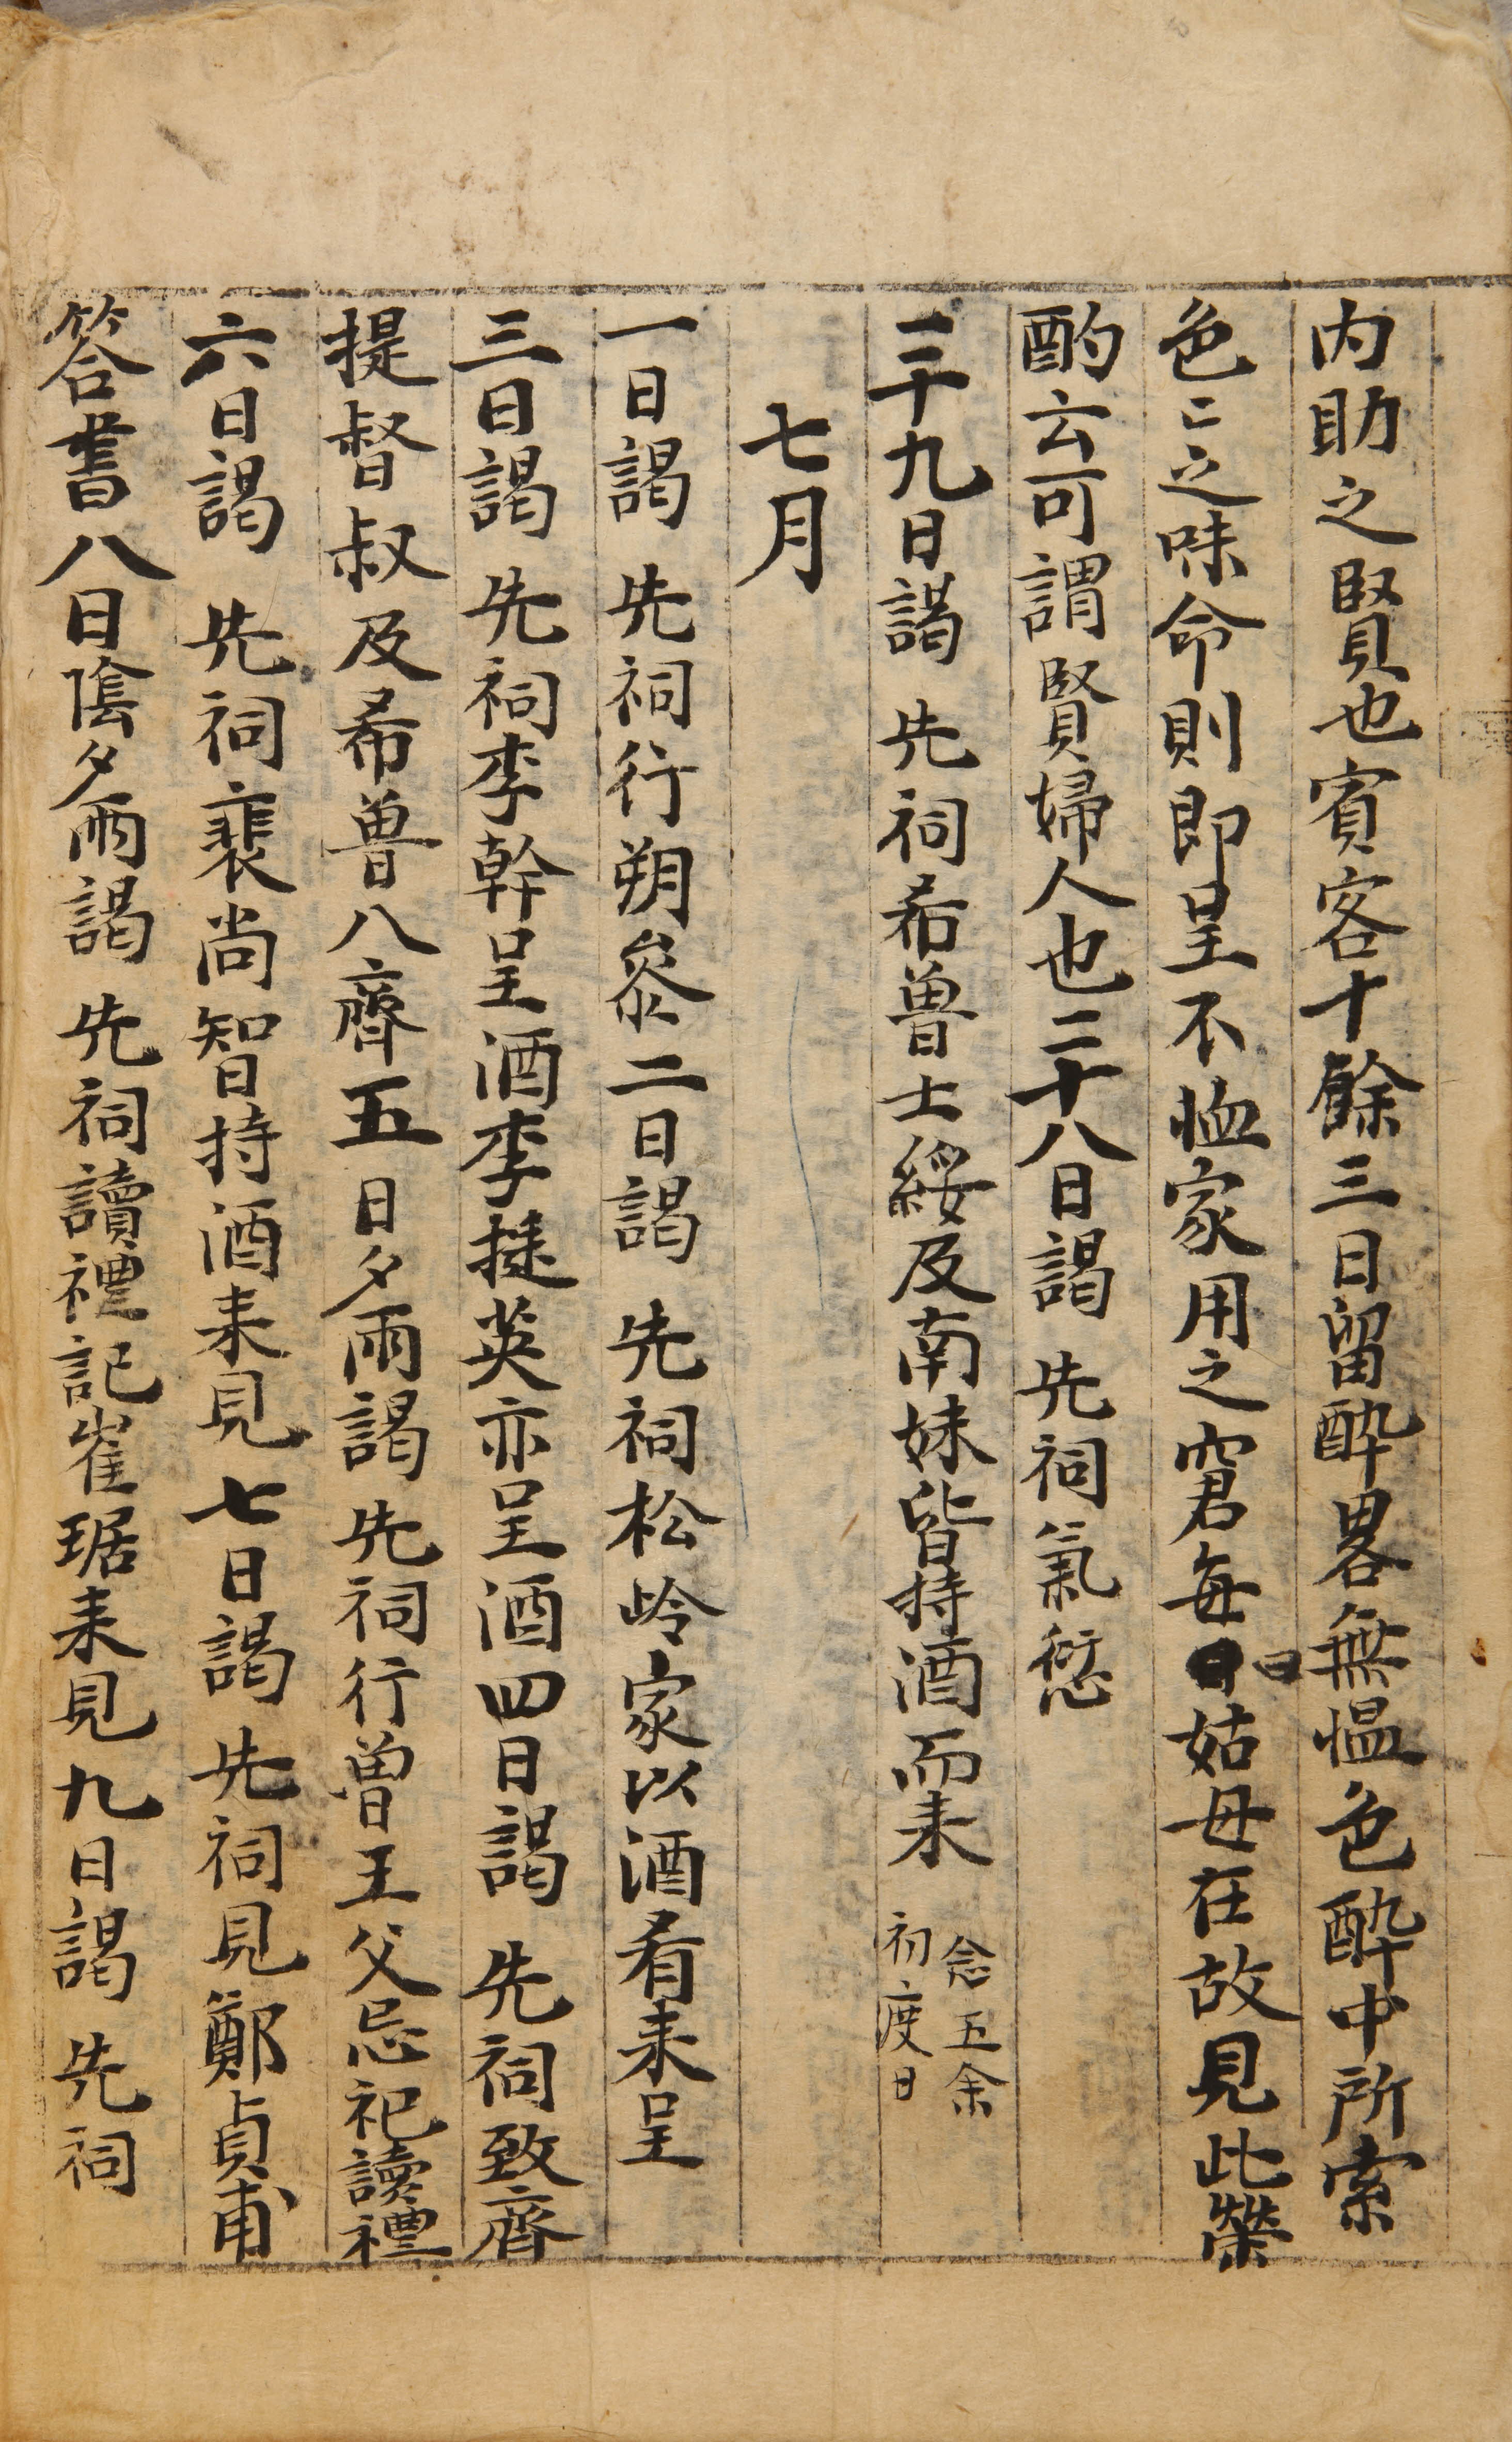 內助之賢也賓客十餘三日留酔畧無愠色酔中所索
色〻之味命則即呈不恤家用之窘每曰姑母在故見此榮
酌云可謂賢婦人也二十八日謁 先祠氣愆
二十九日謁 先祠希曽士綏及南妹皆持酒而来 念五余
初度日
七月
一日謁 先祠行朔叅二日謁 先祠松岭家以酒肴来呈
三日謁 先祠李幹呈酒李挺英亦呈酒四日謁 先祠致齊
提督叔及希曽入齊五日夕雨謁 先祠行曽王父忌祀讀禮
六日謁 先祠裴尙智持酒来見七日謁 先祠見鄭貞甫
答書八日陰夕雨謁 先祠讀禮記崔琚来見九日謁 先祠